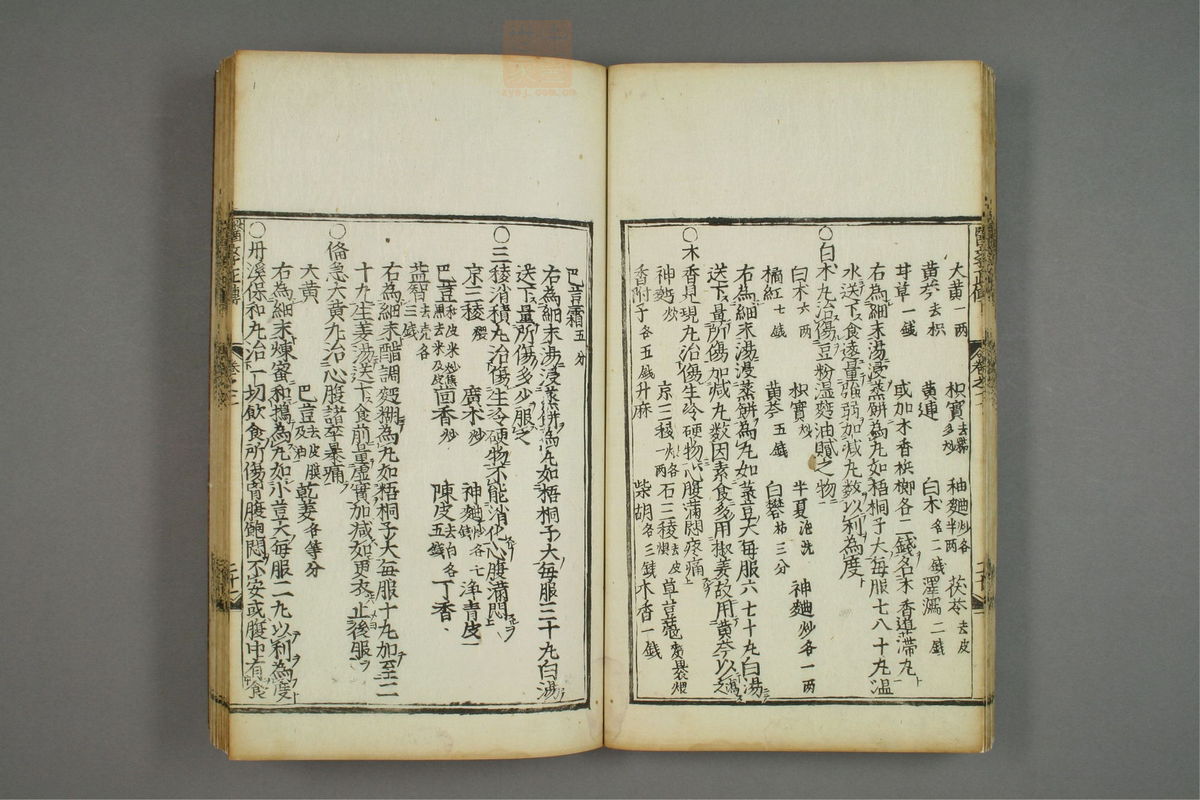 大黃一兩 枳實去穰多炒 神麯炒各半兩 茯苓去皮
黃芩去枳 黃連 白朮各二錢 澤瀉二錢
甘草一錢 或加木香梹榔各二錢名木香道滯丸
右為細末湯浸蒸餅為丸如梧桐子大每服七八十丸溫
水送下食遠量強弱加減丸数以利為度
○白朮丸治傷豆粉溫麪油膩之物
白朮六兩 枳實炒 半夏泡洗 神麯炒各一兩
橘紅七錢 黃芩五錢 白礬枯三分
右為細末湯浸蒸餅為丸如菉豆大每服六七十丸白湯
送下量所傷加減丸数因素食多用椒姜故用黃芩以瀉之
○木香見現丸治傷生冷硬物心腹滿悶疼痛
神麯炒 京三稜火各一兩 石三稜去皮煨 草荳蔻麥裹煨
香附子各五錢 升麻 柴胡各三錢 木香一錢
巴豆霜五分
右為細末湯浸蒸餅為丸如梧桐子大每服三十丸白湯
送下量所傷多少服之
○三稜消積丸治傷生冷硬物不能消化心腹滿悶
京三稜煨 廣朮炒 神麯炒各七錢 淨青皮
巴豆和皮米炒焦黑去米及皮 茴香炒 陳皮去白各五錢 丁香
益智去壳各三錢
右為細末醋調麪糊為丸如梧桐子大每服十丸加至二
十丸生姜湯送下食前量虛實加減如更衣止後服
○俻急大黃丸治心腹諸卒暴痛
大黃 巴豆去皮膜及油 乾姜各等分
右為細末煉蜜和搗為丸如小豆大每服二丸以利為度
○丹溪保和丸治一切飲食所傷胃腹飽悶不安或腹中有食